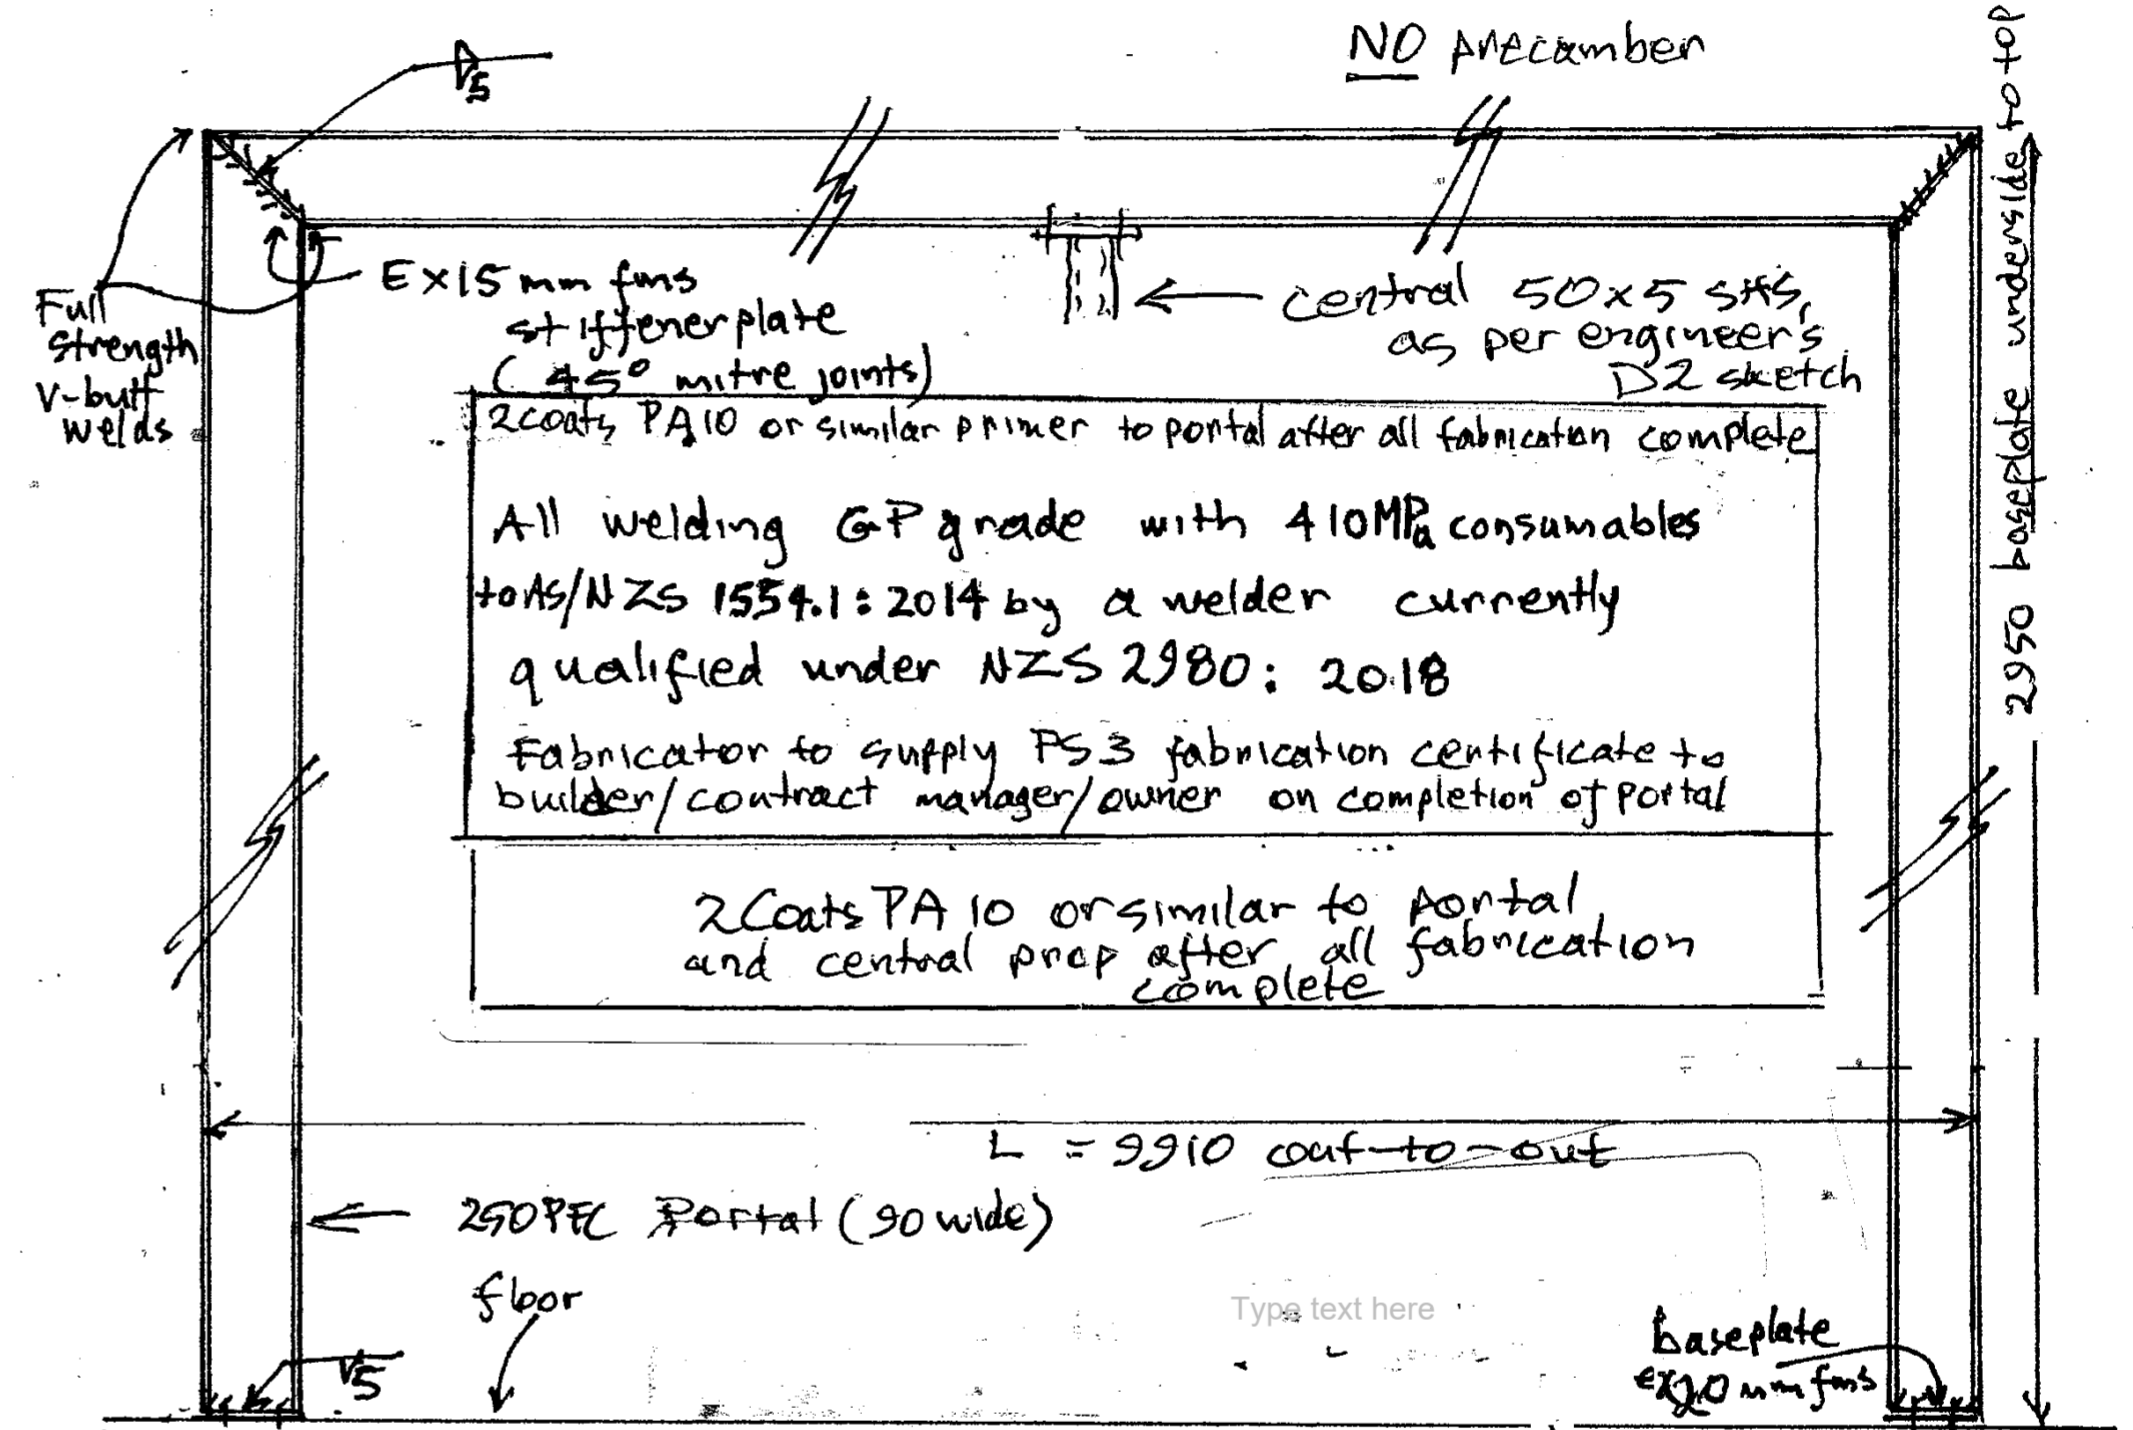 NO precamber
5
Full
strength
V-butt
welds
Ex15mm fms
stiffener plate
(45° mitre joints)
central 50x5 SHS,
as per engineer's
D2 sketch
2950 baseplate underside to top
2coats PA10 or similar primer to portal after all fabrication complete
All welding GP grade with 410MPa consumables
to AS/NZS 1554.1:2014 by a welder currently
qualified under NZS 2980: 2018
Fabricator to supply PS3 fabrication certificate to
builder/contract manager/owner on completion of portal
2Coats PA 10 or similar to portal
and central prop after all fabrication
complete
L = 9910 out-to-out
250PFC Portal (90 wide)
floor
Type text here
5
baseplate
ex20mm fms